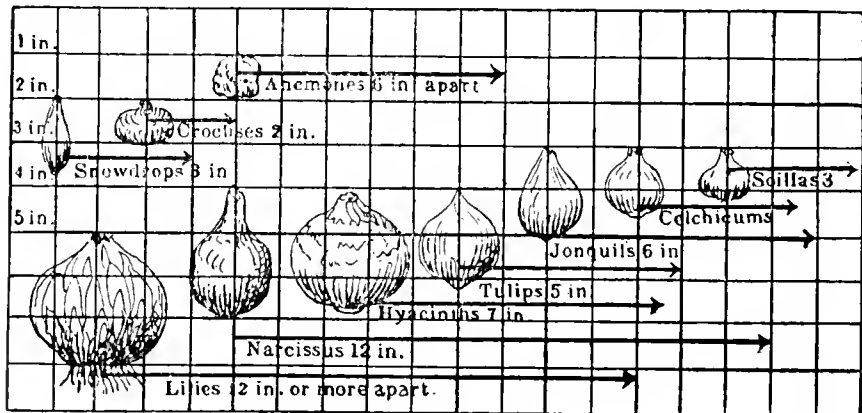 1 in.
Anemones 6 in. apart
2 in.
Crocuses 2 in.
3 in.
Snowdrops 3 in
4 in.
Scillas 3
Colchicums
5 in.
Jonquils 6 in
Tulips 5 in.
Hyacinths 7 in.
Narcissus 12 in.
Lilies 12 in. or more apart.